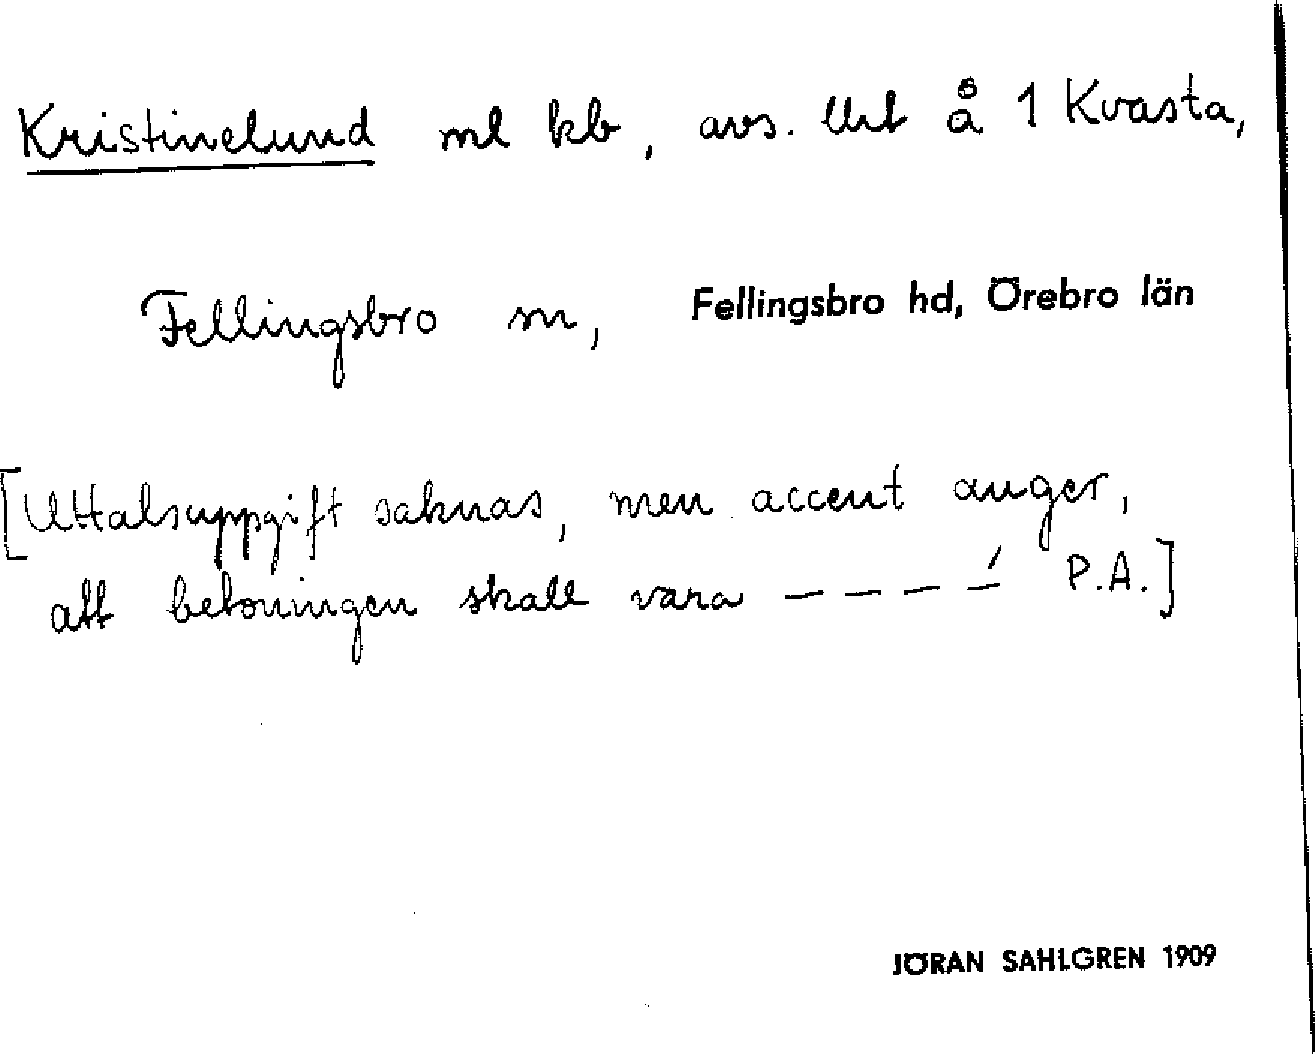 Kristinelund ml kb, avs. Urt å 1 Kvasta,
Fellingsbro sn, Fellingsbro hd, Örebro län
[Uttalsuppgift saknas, men accent anger,
att betoningen skall vara – – – –́ P.A.]
JÖRAN SAHLGREN 1909